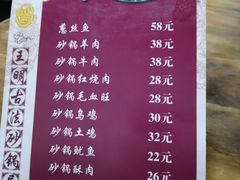 葱丝鱼 58元
砂锅羊肉 38元
砂锅牛肉 38元
砂锅红烧肉 28元
砂锅毛血旺 28元
砂锅乌鸡 30元
砂锅土鸡 32元
砂锅鱿鱼 22元
砂锅酥肉 26元
王明古法砂锅